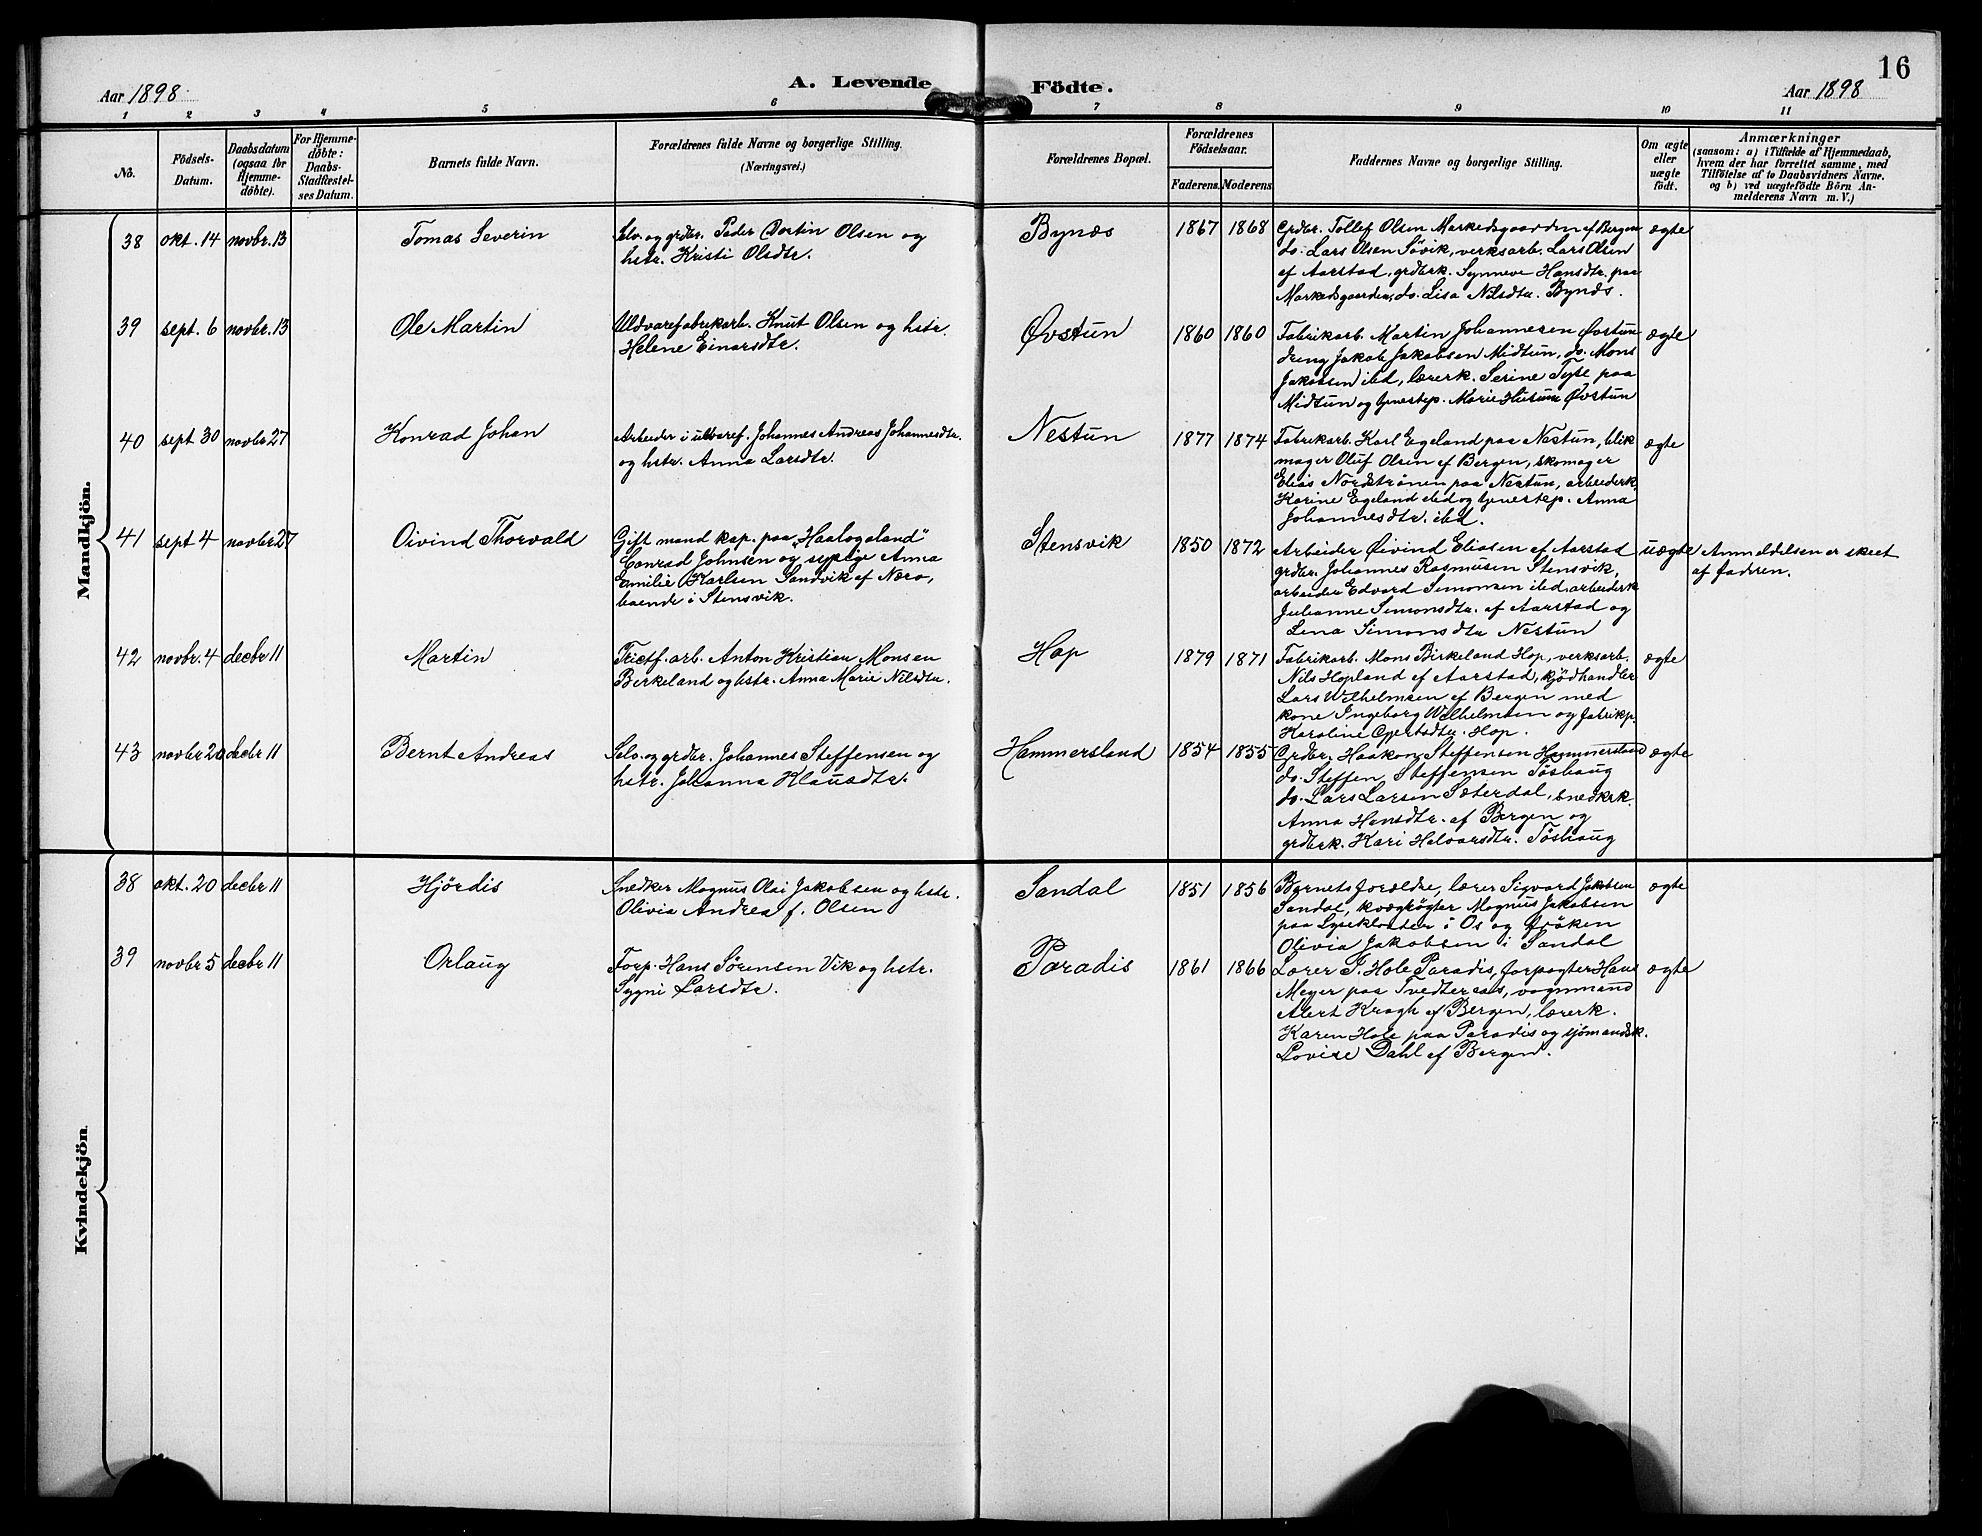 16
A. Levende Födte.
Aar 1898
Aar 1898
1 2 3 4 5 6 7 8 9 10 11
No.
Födsels-Datum.
Daabsdatum (ogsaa for Hjemme-döbte).
For Hjemme-döbte: Daabs-Stadfæstel-ses Datum.
Barnets fulde Navn.
Forældrenes fulde Navne og borgerlige Stilling.
(Næringsvei.)
Forældrenes Bopæl.
Forældrenes Födselsaar.
Faderens. Moderens
Faddernes Navne og borgerlige Stilling.
Om ægte eller uægte födt.
Anmærkninger
(saasom: a) i Tilfælde af Hjemmedaab,
hvem der har forrettet samme, med
Tilföielse af to Daabsvidners Navne.
og b) ved uægtefödte Börn An-
melderens Navn m. V.)
Mandkjön.
38 okt. 14 novbr. 13 Tomas Severin
Selv. og grdbr. Peder Martin Olsen og
hstr. Kristi Olsdtr.
Bynæs 1867 1868
Grdbr. Tollef Olsen Markedsgaarden af Bergen
do. Lars Olsen Søvik, verksarb. Lars Olsen
af Aarstad, grdbrk. Synneve Hansdtr. paa
Markedsgaarden, do. Lisa Nilsdtr. Bynæs.
ægte
39 sept. 6 novbr. 13 Ole Martin
Uldvarefabrikarb. Knut Olsen og hstr.
Helene Einarsdtr.
Øvstun 1860 1860
Fabrikarb. Martin Johannesen Øvstun
dreng Jakob Jakobsen Midtun, do. Mons
Jakobsen ibd, lærerk. Serine paa
Midtun og tjenestep. Marie Øvstun
ægte
40 sept 30 novbr 27 Konrad Johan
Arbeider i uldvaref. Johannes Andreas Johannesdtr.
og hstr. Anna Larsdtr.
Nestun 1877 1874
Fabrikarb. Karl Egeland paa Nestun, blik
mager Oluf Olsen af Bergen, skomager
Elias Nordstrønen paa Nestun, arbeiderk.
Karine Egeland ibd og tjenestep. Anna
Johannesdtr. ibd.
ægte
41 sept 4 novbr 27 Oivind Thorvald
Gift mand kap. paa "Haalogaland"
Conrad Johnsen og ugifte Anna
Emilie Karlsen Sandvik af Nærø,
boende i Stensvik.
Stensvik 1850 1872
Arbeider Øivind Eliasen af Aarstad
grdbr. Johannes Rasmusen Stensvik,
arbeider Edvard Simonsen ibd, arbeiderk
Julianne Simonsdtr. af Aarstad og
Lena Simonsdtr Nestun
uægte
Anmeldelsen er skeet
af fadren.
42 novbr. 4 decbr 11 Martin
Trictf. arb. Anton Kristian Monsen
Birkeland og hstr. Anna Marie Nilsdtr.
Hop 1879 1871
Fabrikarb. Mons Birkeland Hop, verksarb.
Nils Hopland af Aarstad, kjødhandler
Lars Wilhelmsen af Bergen med
kone Ingeborg Wilhelmsen og fabrikp.
Karoline Hop.
ægte
43 novbr 20 decbr 11 Bernt Andreas
Selv. og grdbr. Johannes Steffensen og
hstr. Johanna Klausdtr.
Hammersland 1854 1855
Grdbr. Haakon Steffensen Hammersland
do. Steffen Steffensen Tøshaug
do. Lars Larsen Sæterdal, snedkrk.
Anna Hansdtr. af Bergen og
grdbrk. Kari Halvorsdtr. Tøshaug
ægte
Kvindekjön
38 okt. 20 decbr 11 Hjørdis
Snedker Magnus Olai Jakobsen og hstr.
Olivia Andrea f. Olsen
Sandal 1851 1856
Barnets forældre, lærer Sigvard Jakobsen
Sandal, kvægrøgter Magnus Jakobsen
paa Lysekloster i Os og frøken
Olivia Jakobsen i Sandal
ægte
39 novbr 5 decbr 11 Orlaug
Forp. Hans Sørensen Vik og hstr.
Sygni Larsdtr.
Paradis 1861 1866
Lærer P. Hole Paradis, forpagter Hans
Meyer paa Tvedteraas, vognmand
Alert Kragh af Bergen, lærerk.
Karen Hole paa Paradis og sjømandsk.
Lovise Dahl af Bergen.
ægte